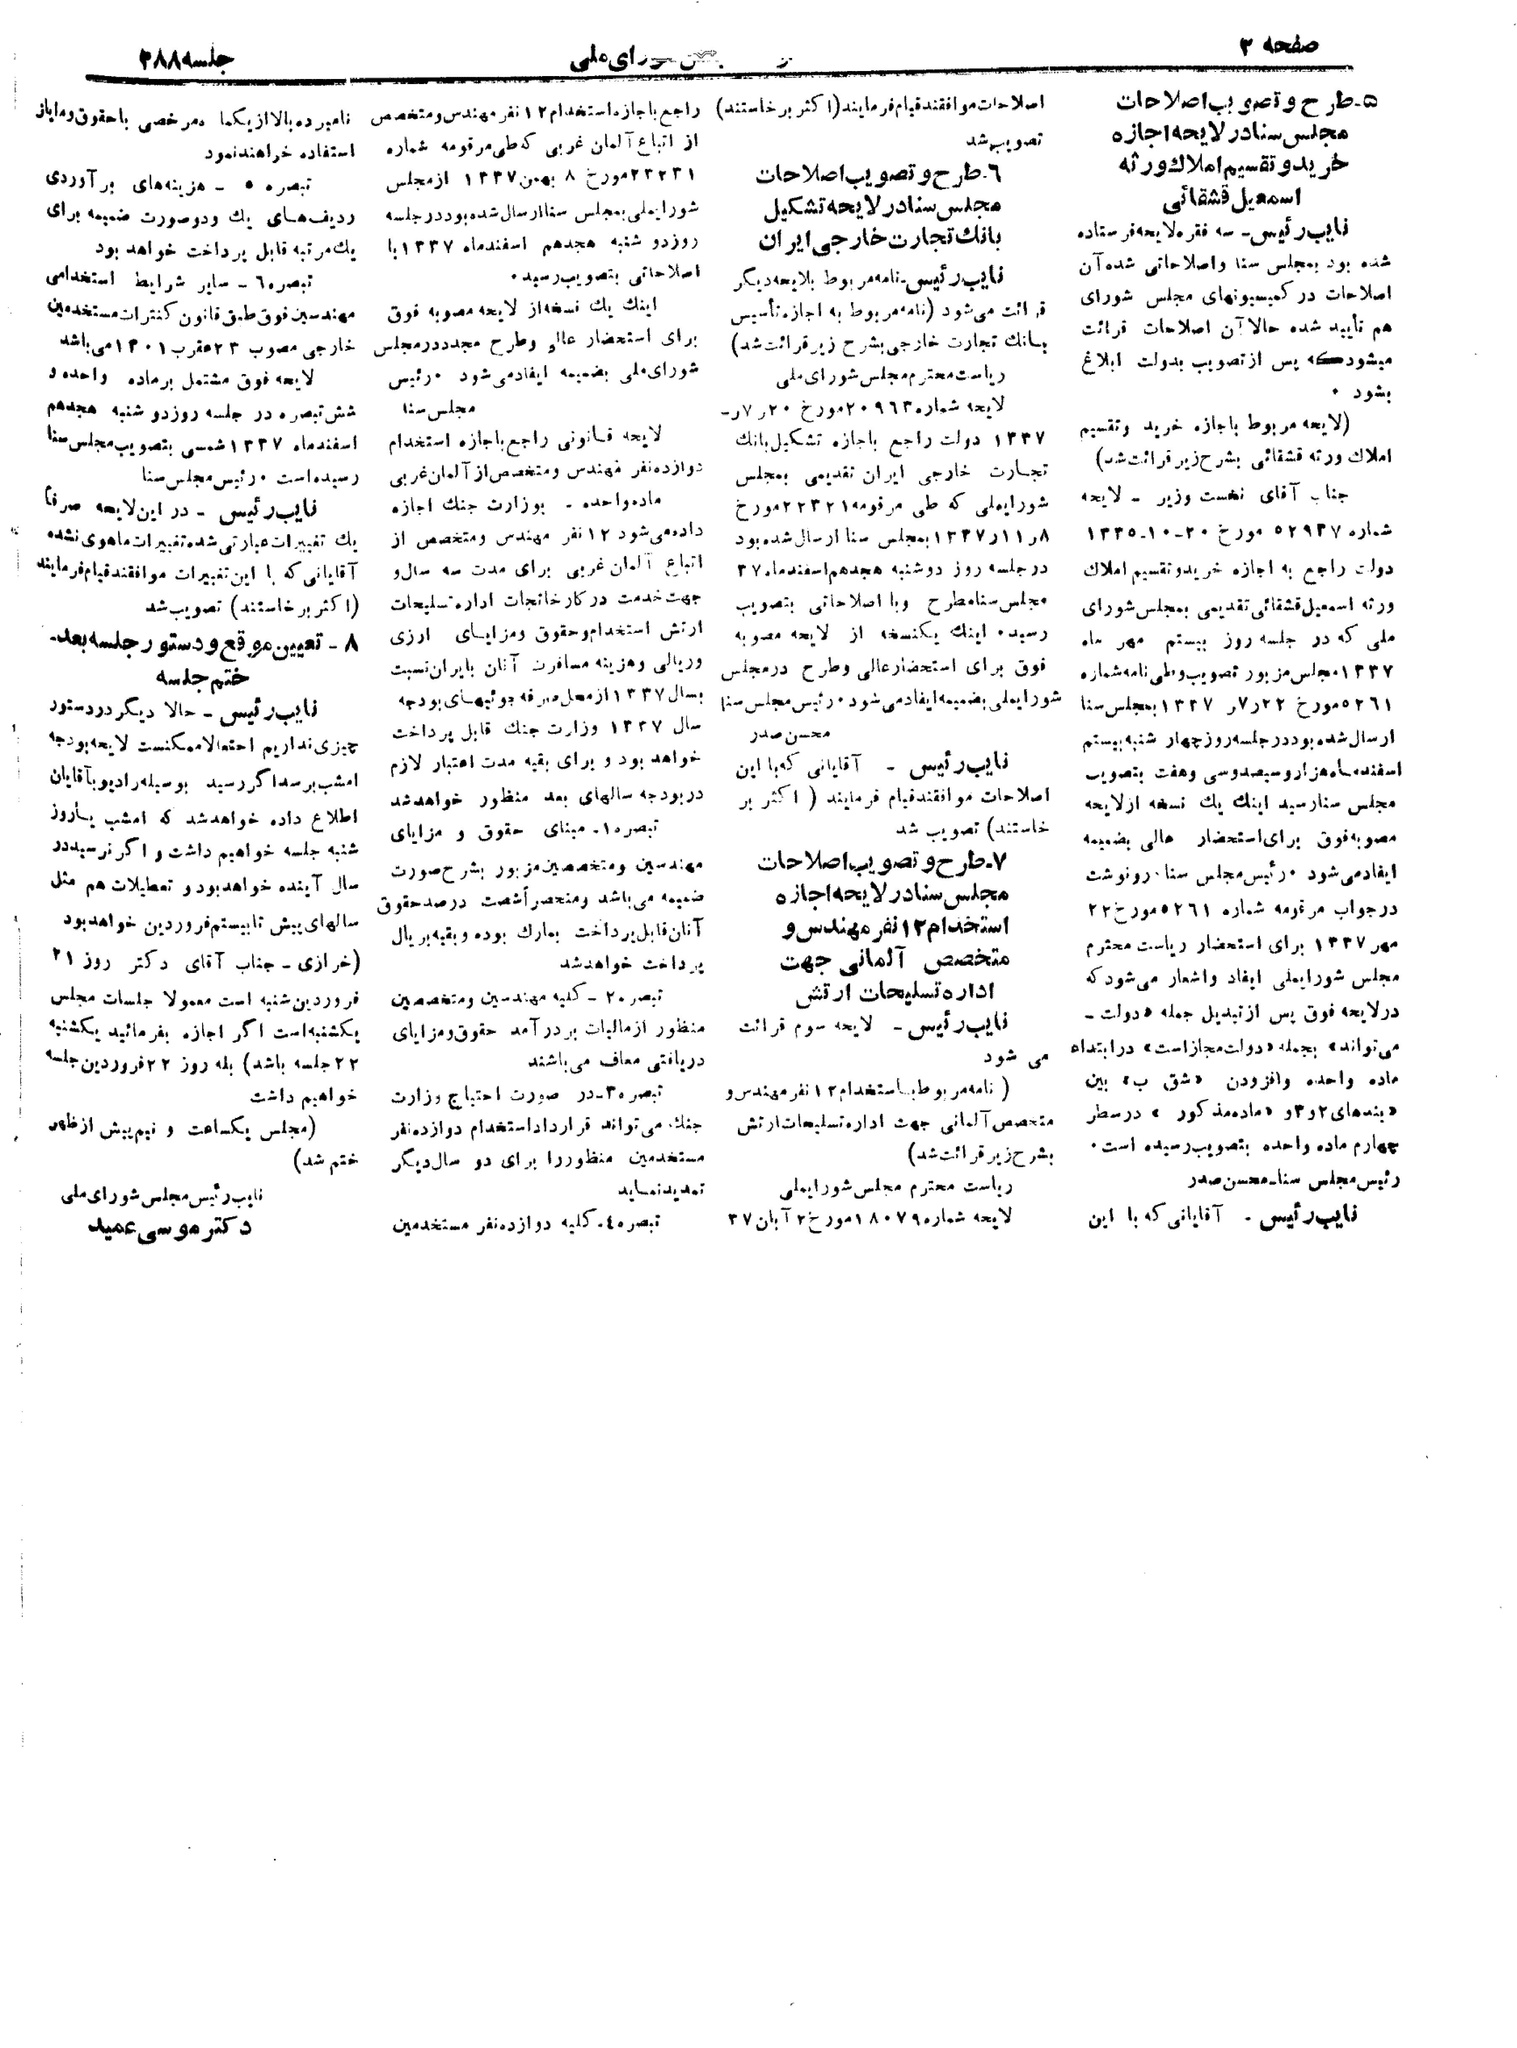 صفحه ۳
شورای ملی
جلسه ۳۸۸
۵ـ طرح و تصویب اصلاحات
مجلس سنا در لایحه اجازه
خرید و تقسیم املاک ورثه
اسمعیل قشقائی
نایب رئیس ـ سه فقره لایحه فرستاده
شده بود بمجلس سنا و اصلاحاتی شده آن
اصلاحات در کمیسیونهای مجلس شورای
هم تأیید شده حالا آن اصلاحات قرائت
میشود که پس از تصویب بدولت ابلاغ
بشود .
(لایحه مربوط باجازه خرید و تقسیم
املاک ورثه قشقائی بشرح زیر قرائت شد)
جناب آقای نخست وزیر ـ لایحه
شماره ۵۲۹۳۷ مورخ ۲۰ـ۱۰ـ۱۳۳۵
دولت راجع به اجازه خرید و تقسیم املاک
ورثه اسمعیل قشقائی تقدیمی بمجلس شورای
ملی که در جلسه روز بیستم مهر ماه
۱۳۳۷ مجلس مزبور تصویب و طی نامه شماره
۵۲۶۱ مورخ ۲۲ر۷ر ۱۳۳۷ بمجلس سنا
ارسال شده بود در جلسه روز چهار شنبه بیستم
اسفند ماه هزار و سیصد و سی و هفت بتصویب
مجلس سنا رسید اینک یک نسخه از لایحه
مصوبه فوق برای استحضار عالی بضمیمه
ایفاد می شود . رئیس مجلس سنا . رونوشت
در جواب مرقومه شماره ۵۲۶۱ مورخ ۲۲
مهر ۱۳۳۷ برای استحضار ریاست محترم
مجلس شورایملی ایفاد و اشعار می شود که
در لایحه فوق پس از تبدیل جمله «دولت ـ
می تواند» بجمله «دولت مجاز است» در ابتداء
ماده واحده و افزودن «شق ب» بین
«بندهای ۲ و ۳ و «ماده مذکور » در سطر
چهارم ماده واحده بتصویب رسیده است .
رئیس مجلس سنا ـ محسن صدر
نایب رئیس ـ آقایانی که با این
اصلاحات موافقند قیام فرمایند (اکثر برخاستند)
تصویب شد
۶ـ طرح و تصویب اصلاحات
مجلس سنا در لایحه تشکیل
بانک تجارت خارجی ایران
نایب رئیس ـ نامه مربوط بلایحه دیگر
قرائت می شود (نامه مربوط به اجازه تأسیس
بانک تجارت خارجی بشرح زیر قرائت شد)
ریاست محترم مجلس شورای ملی
لایحه شماره ۲۰۹۶۳ مورخ ۲۰ر۷ر ـ
۱۳۳۷ دولت راجع باجازه تشکیل بانک
تجارت خارجی ایران تقدیمی بمجلس
شورایملی که طی مرقومه ۲۲۳۲۱ مورخ
۸ر۱۱ر۱۳۳۷ بمجلس سنا ارسال شده بود
در جلسه روز دوشنبه هجدهم اسفند ماه ۳۷
مجلس سنا مطرح و با اصلاحاتی بتصویب
رسید . اینک یکنسخه از لایحه مصوبه
فوق برای استحضار عالی و طرح در مجلس
شورایملی بضمیمه ایفاد می شود . رئیس مجلس سنا
محسن صدر
نایب رئیس ـ آقایانی که با این
اصلاحات موافقند قیام فرمایند ( اکثر بر
خاستند) تصویب شد
۷ـ طرح و تصویب اصلاحات
مجلس سنا در لایحه اجازه
استخدام ۱۲ نفر مهندس و
متخصص آلمانی جهت
اداره تسلیحات ارتش
نایب رئیس ـ لایحه سوم قرائت
می شود
( نامه مربوط باستخدام ۱۲ نفر مهندس و
متخصص آلمانی جهت اداره تسلیحات ارتش
بشرح زیر قرائت شد)
ریاست محترم مجلس شورایملی
لایحه شماره ۱۸۰۷۹ مورخ ۲ آبان ۳۷
راجع باجازه استخدام ۱۲ نفر مهندس و متخصص
از اتباع آلمان غربی که طی مرقومه شماره
۲۲۲۳۱ مورخ ۸ بهمن ۱۳۳۷ از مجلس
شورایملی بمجلس سنا ارسال شده بود در جلسه
روز دو شنبه هجدهم اسفند ماه ۱۳۳۷ با
اصلاحاتی بتصویب رسید .
اینک یک نسخه از لایحه مصوبه فوق
برای استحضار عالی و طرح مجدد در مجلس
شورای ملی بضمیمه ایفاد می شود . رئیس
مجلس سنا
لایحه قانونی راجع باجازه استخدام
دوازده نفر مهندس و متخصص از آلمان غربی
ماده واحده ـ بوزارت جنک اجازه
داده می شود ۱۲ نفر مهندس و متخصص از
اتباع آلمان غربی برای مدت سه سال و
جهت خدمت در کارخانجات اداره تسلیحات
ارتش استخدام و حقوق و مزایای ارزی
و ریالی و هزینه مسافرت آنان بایران نسبت
بسال ۱۳۳۷ از محل صرفه جوئیهای بودجه
سال ۱۳۳۷ وزارت جنک قابل پرداخت
خواهد بود و برای بقیه مدت اعتبار لازم
در بودجه سالهای بعد منظور خواهد شد
تبصره ۱ـ مبنای حقوق و مزایای
مهندسین و متخصصین مزبور بشرح صورت
ضمیمه می باشد و منحصراً شصت درصد حقوق
آنان قابل پرداخت بمارک بوده و بقیه بریال
پرداخت خواهد شد
تبصره ۲ ـ کلیه مهندسین و متخصصین
منظور از مالیات بر درآمد حقوق و مزایای
دریافتی معاف می باشند
تبصره ۳ـ در صورت احتیاج وزارت
جنک می تواند قرارداد استخدام دوازده نفر
مستخدمین منظور را برای دو سال دیگر
تمدید نماید
تبصره ۴ـ کلیه دوازده نفر مستخدمین
نامبرده بالا از یکماه مرخصی با حقوق و مزایا
استفاده خواهند نمود
تبصره ۵ ـ هزینه های برآوردی
ردیف های یک و دو صورت ضمیمه برای
یک مرتبه قابل پرداخت خواهد بود
تبصره ۶ ـ سایر شرایط استخدامی
مهندسین فوق طبق قانون کنترات مستخدمین
خارجی مصوب ۲۳ عقرب ۱۳۰۱ می باشد
لایحه فوق مشتمل بر ماده واحده و
شش تبصره در جلسه روز دو شنبه هجدهم
اسفند ماه ۱۳۳۷ شمسی بتصویب مجلس سنا
رسیده است . رئیس مجلس سنا
نایب رئیس ـ در این لایحه صرفاً
یک تغییرات عبارتی شده تغییرات ماهوی نشده
آقایانی که با این تغییرات موافقند قیام فرمایند
(اکثر برخاستند) تصویب شد
۸ ـ تعیین موقع و دستور جلسه بعد ـ
ختم جلسه
نایب رئیس ـ حالا دیگر در دستور
چیزی نداریم احتمالا ممکنست لایحه بودجه
امشب برسد اگر رسید بوسیله رادیو بآقایان
اطلاع داده خواهد شد که امشب یا روز
شنبه جلسه خواهیم داشت و اگر نرسید در
سال آینده خواهد بود و تعطیلات هم مثل
سالهای پیش تا بیستم فروردین خواهد بود
(خرازی ـ جناب آقای دکتر روز ۲۱
فروردین شنبه است معمولا جلسات مجلس
یکشنبه است اگر اجازه بفرمائید یکشنبه
۲۲ جلسه باشد) بله روز ۲۲ فروردین جلسه
خواهیم داشت
(مجلس یکساعت و نیم پیش از ظهر
ختم شد)
نایب رئیس مجلس شورای ملی
دکتر موسی عمید